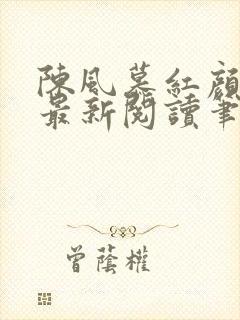 陳風慕紅顏
最新閱讀筆
曾蔭權